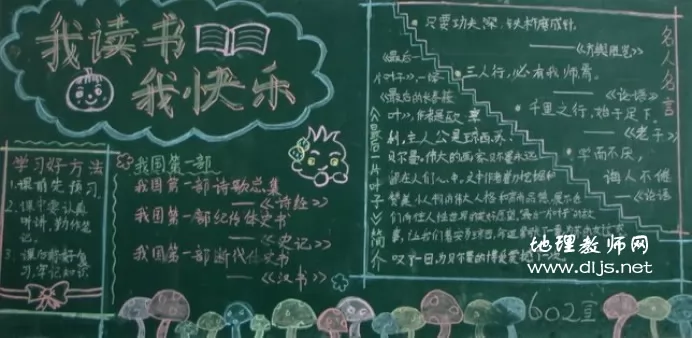 我读书
我快乐
学习好方法
1.课前先预习。
2.课中要认真
听讲,勤作笔
记。
3.课后
习,牢记知识
我国第一部
我国第一部诗歌总集
——《诗经》
我国第一部纪传体史书
——《史记》
我国第一部断代体史书
——《汉书》
《最后一片叶子》简介
《最后一
片叶子》
《最后的长春藤
叶》,作者是欧·亨
利,主人公是琼西、苏、
贝尔曼。伟大的画家贝尔曼永远
活在人们心中,文中作者着力挖掘和
赞美小人物的伟大人格和高尚品德,展示他
们向往人性世界的美好愿望。
叹了一口
名人名言
只要功夫深,铁杵磨成针。
——《方舆胜览》
三人行,必有我师焉。
——《论语》
千里之行,始于足下。
——《老子》
学而不厌,
诲人不倦
——《论语》
602宣
地理教师网
www.dljs.net